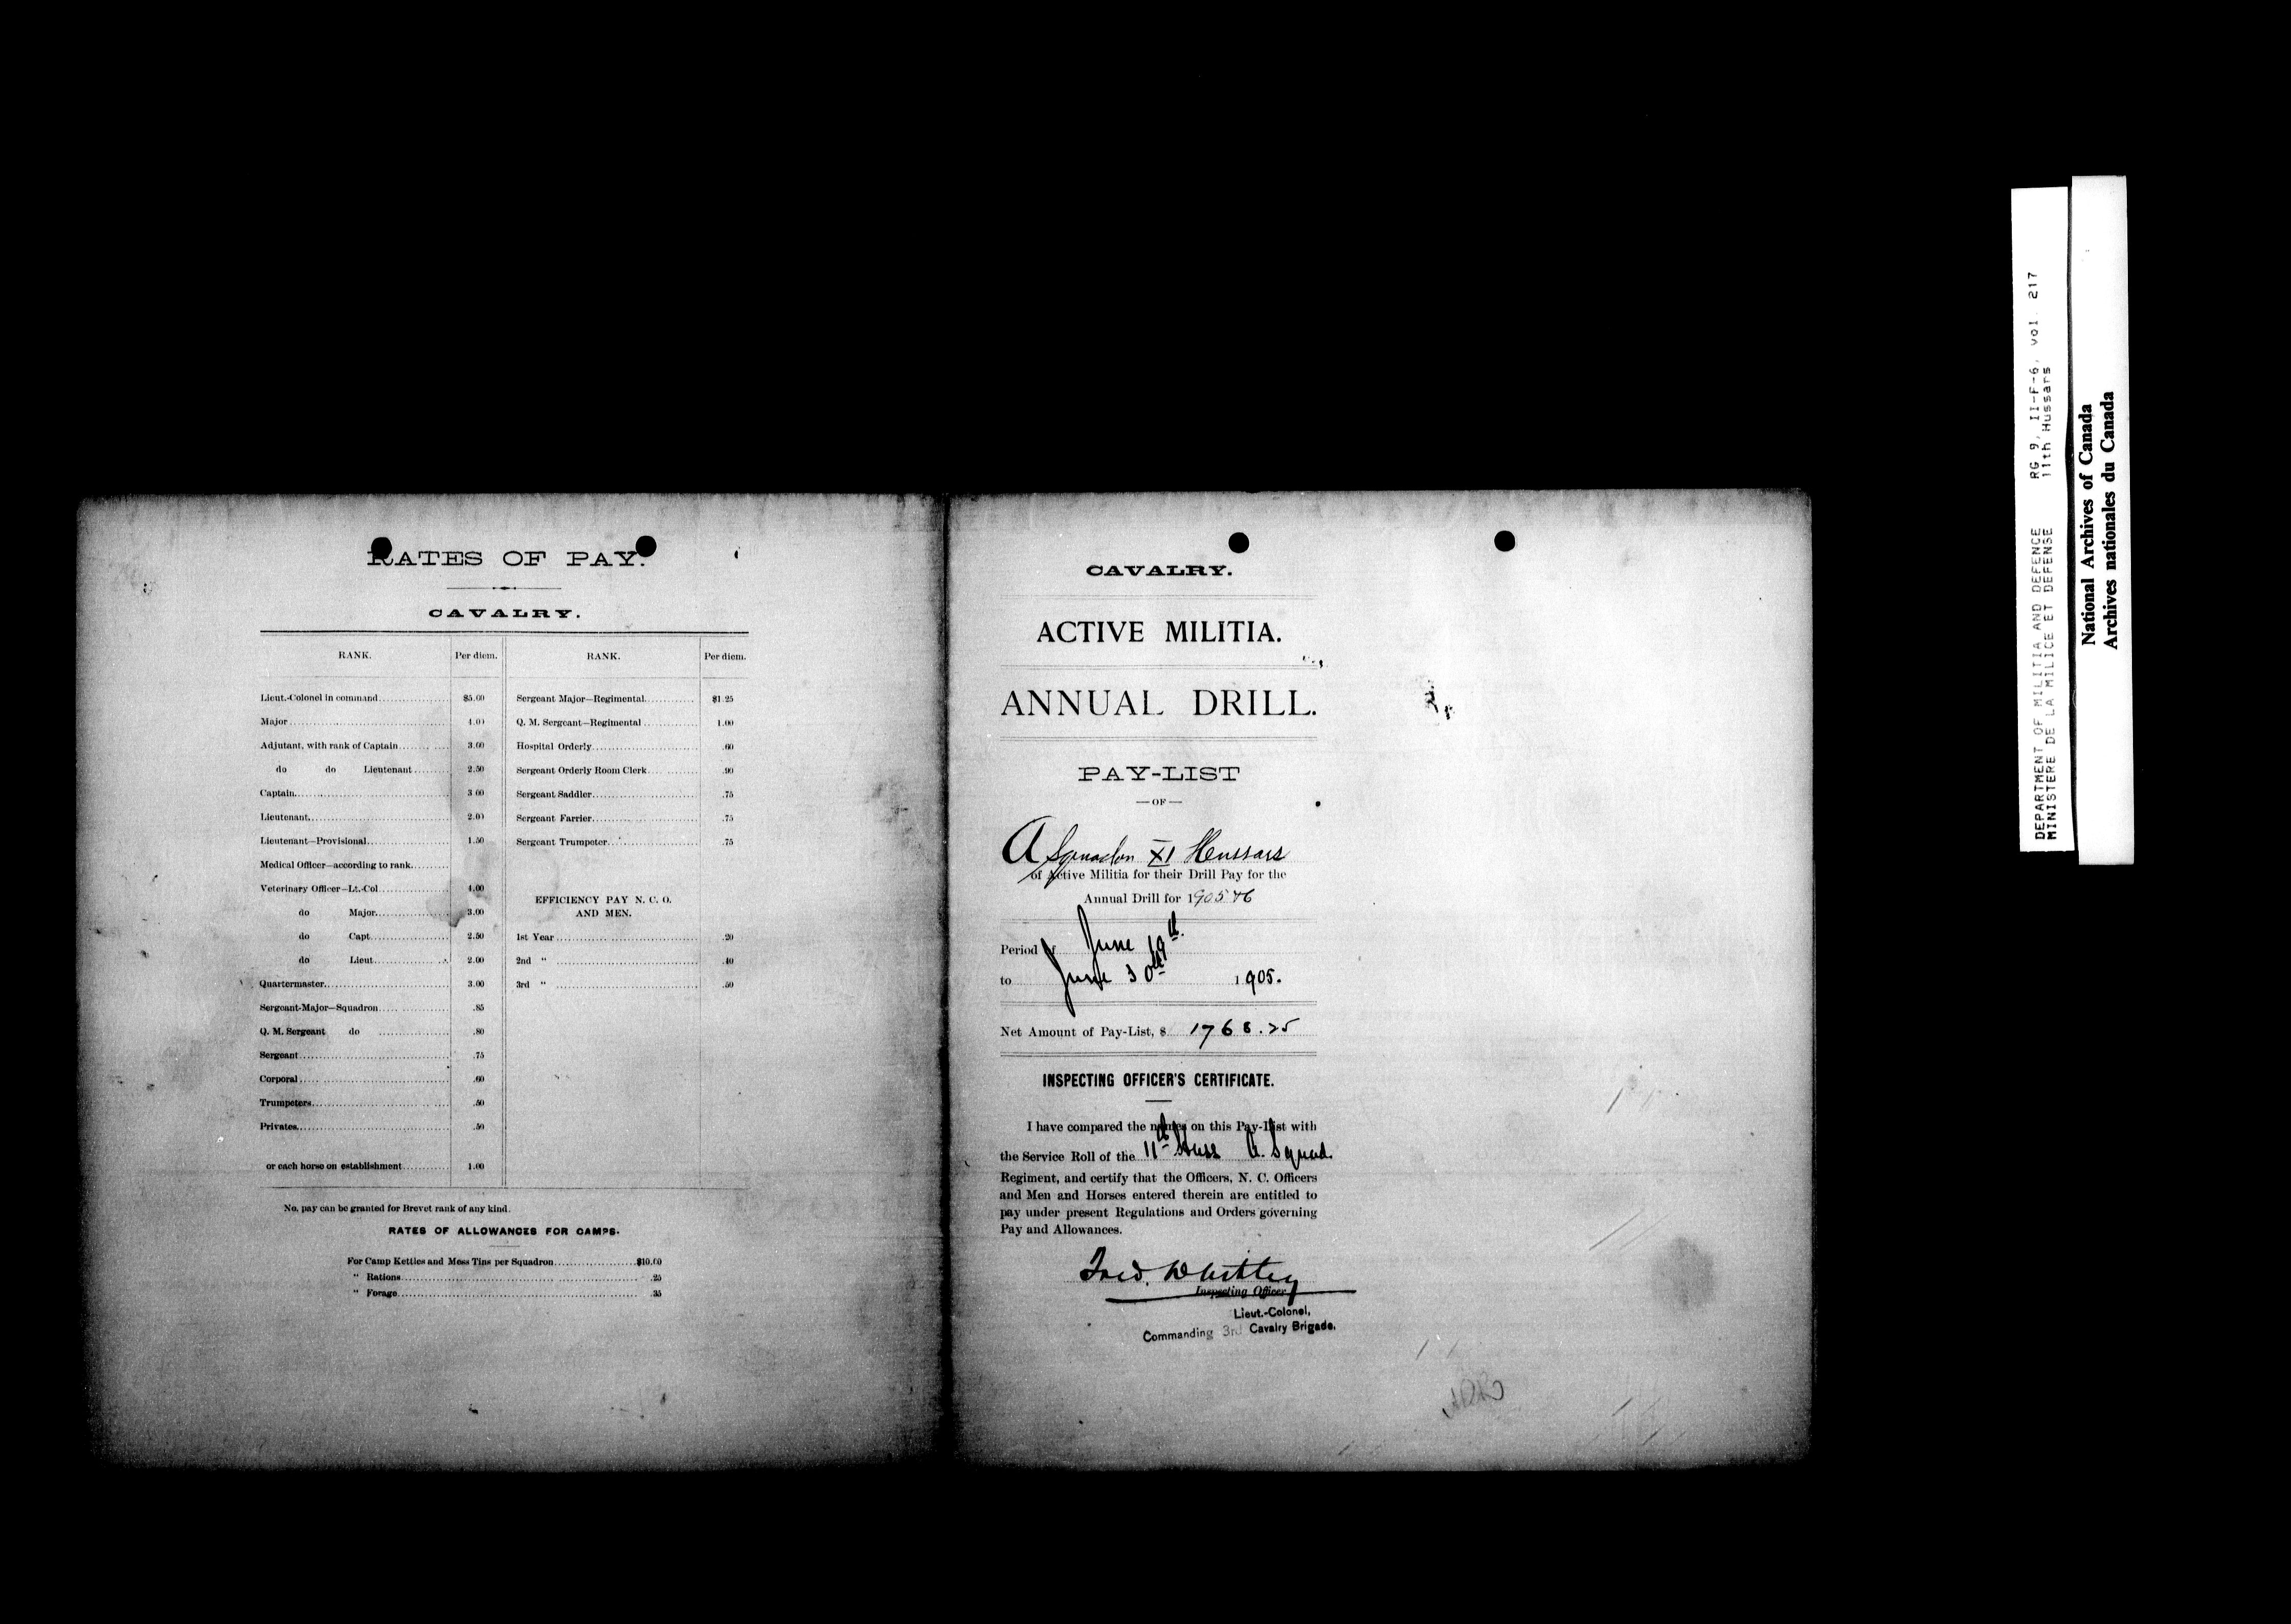 RATES OF PAY.
CAVALRY.
RANK. Per diem.
Lieut.-Colonel in command $5.00
Major 4.00
Adjutant, with rank of Captain 3.00
do do Lieutenant 2.50
Captain 3 00
Lieutenant 2.00
Lieutenant—Provisional 1.50
Medical Officer—according to rank
Veterinary Officer—Lt.-Col 4.00
do Major 3.00
do Capt 2.50
do Lieut 2.00
Quartermaster 3.00
Sergeant-Major—Squadron .85
Q. M. Sergeant do .80
Sergeant .75
Corporal .60
Trumpeters .50
Privates .50
or each horse on establishment 1.00
RANK. Per diem.
Sergeant Major—Regimental $1.25
Q. M. Sergeant—Regimental 1.00
Hospital Orderly .60
Sergeant Orderly Room Clerk .90
Sergeant Saddler .75
Sergeant Farrier .75
Sergeant Trumpeter .75
EFFICIENCY PAY N. C. O.
AND MEN.
1st Year .20
2nd " .40
3rd " .50
No. pay can be granted for Brevet rank of any kind.
RATES OF ALLOWANCES FOR CAMPS.
For Camp Kettles and Mess Tins per Squadron $10.00
" Rations .25
" Forage .35
CAVALRY.
ACTIVE MILITIA.
ANNUAL DRILL.
PAY-LIST
—OF—
A Squadron XI Hussars
of Active Militia for their Drill Pay for the
Annual Drill for 1905
Period of June 19th
to June 30th 1905.
Net Amount of Pay-List, $ 1768.25
INSPECTING OFFICER'S CERTIFICATE.
I have compared the names on this Pay-List with
the Service Roll of the 11th Huss A. Squad.
Regiment, and certify that the Officers, N. C. Officers
and Men and Horses entered therein are entitled to
pay under present Regulations and Orders governing
Pay and Allowances.
Fred. Whitley
Inspecting Officer
Lieut.-Colonel,
Commanding 3rd Cavalry Brigade.
DEPARTMENT OF MILITIA AND DEFENCE RG 9, II-F-6, vol. 217
MINISTERE DE LA MILICE ET DEFENSE 11th Hussars
National Archives of Canada
Archives nationales du Canada